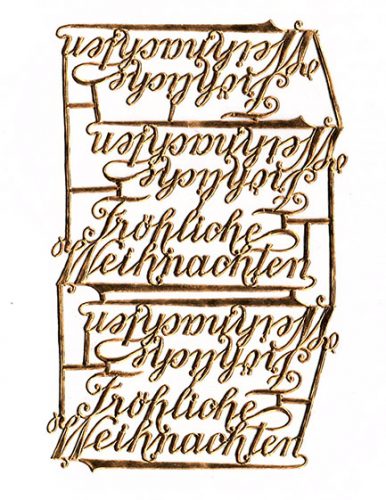 Fröhliche
Weihnachten
Fröhliche
Weihnachten
Fröhliche
Weihnachten
Fröhliche
Weihnachten
Fröhliche
Weihnachten